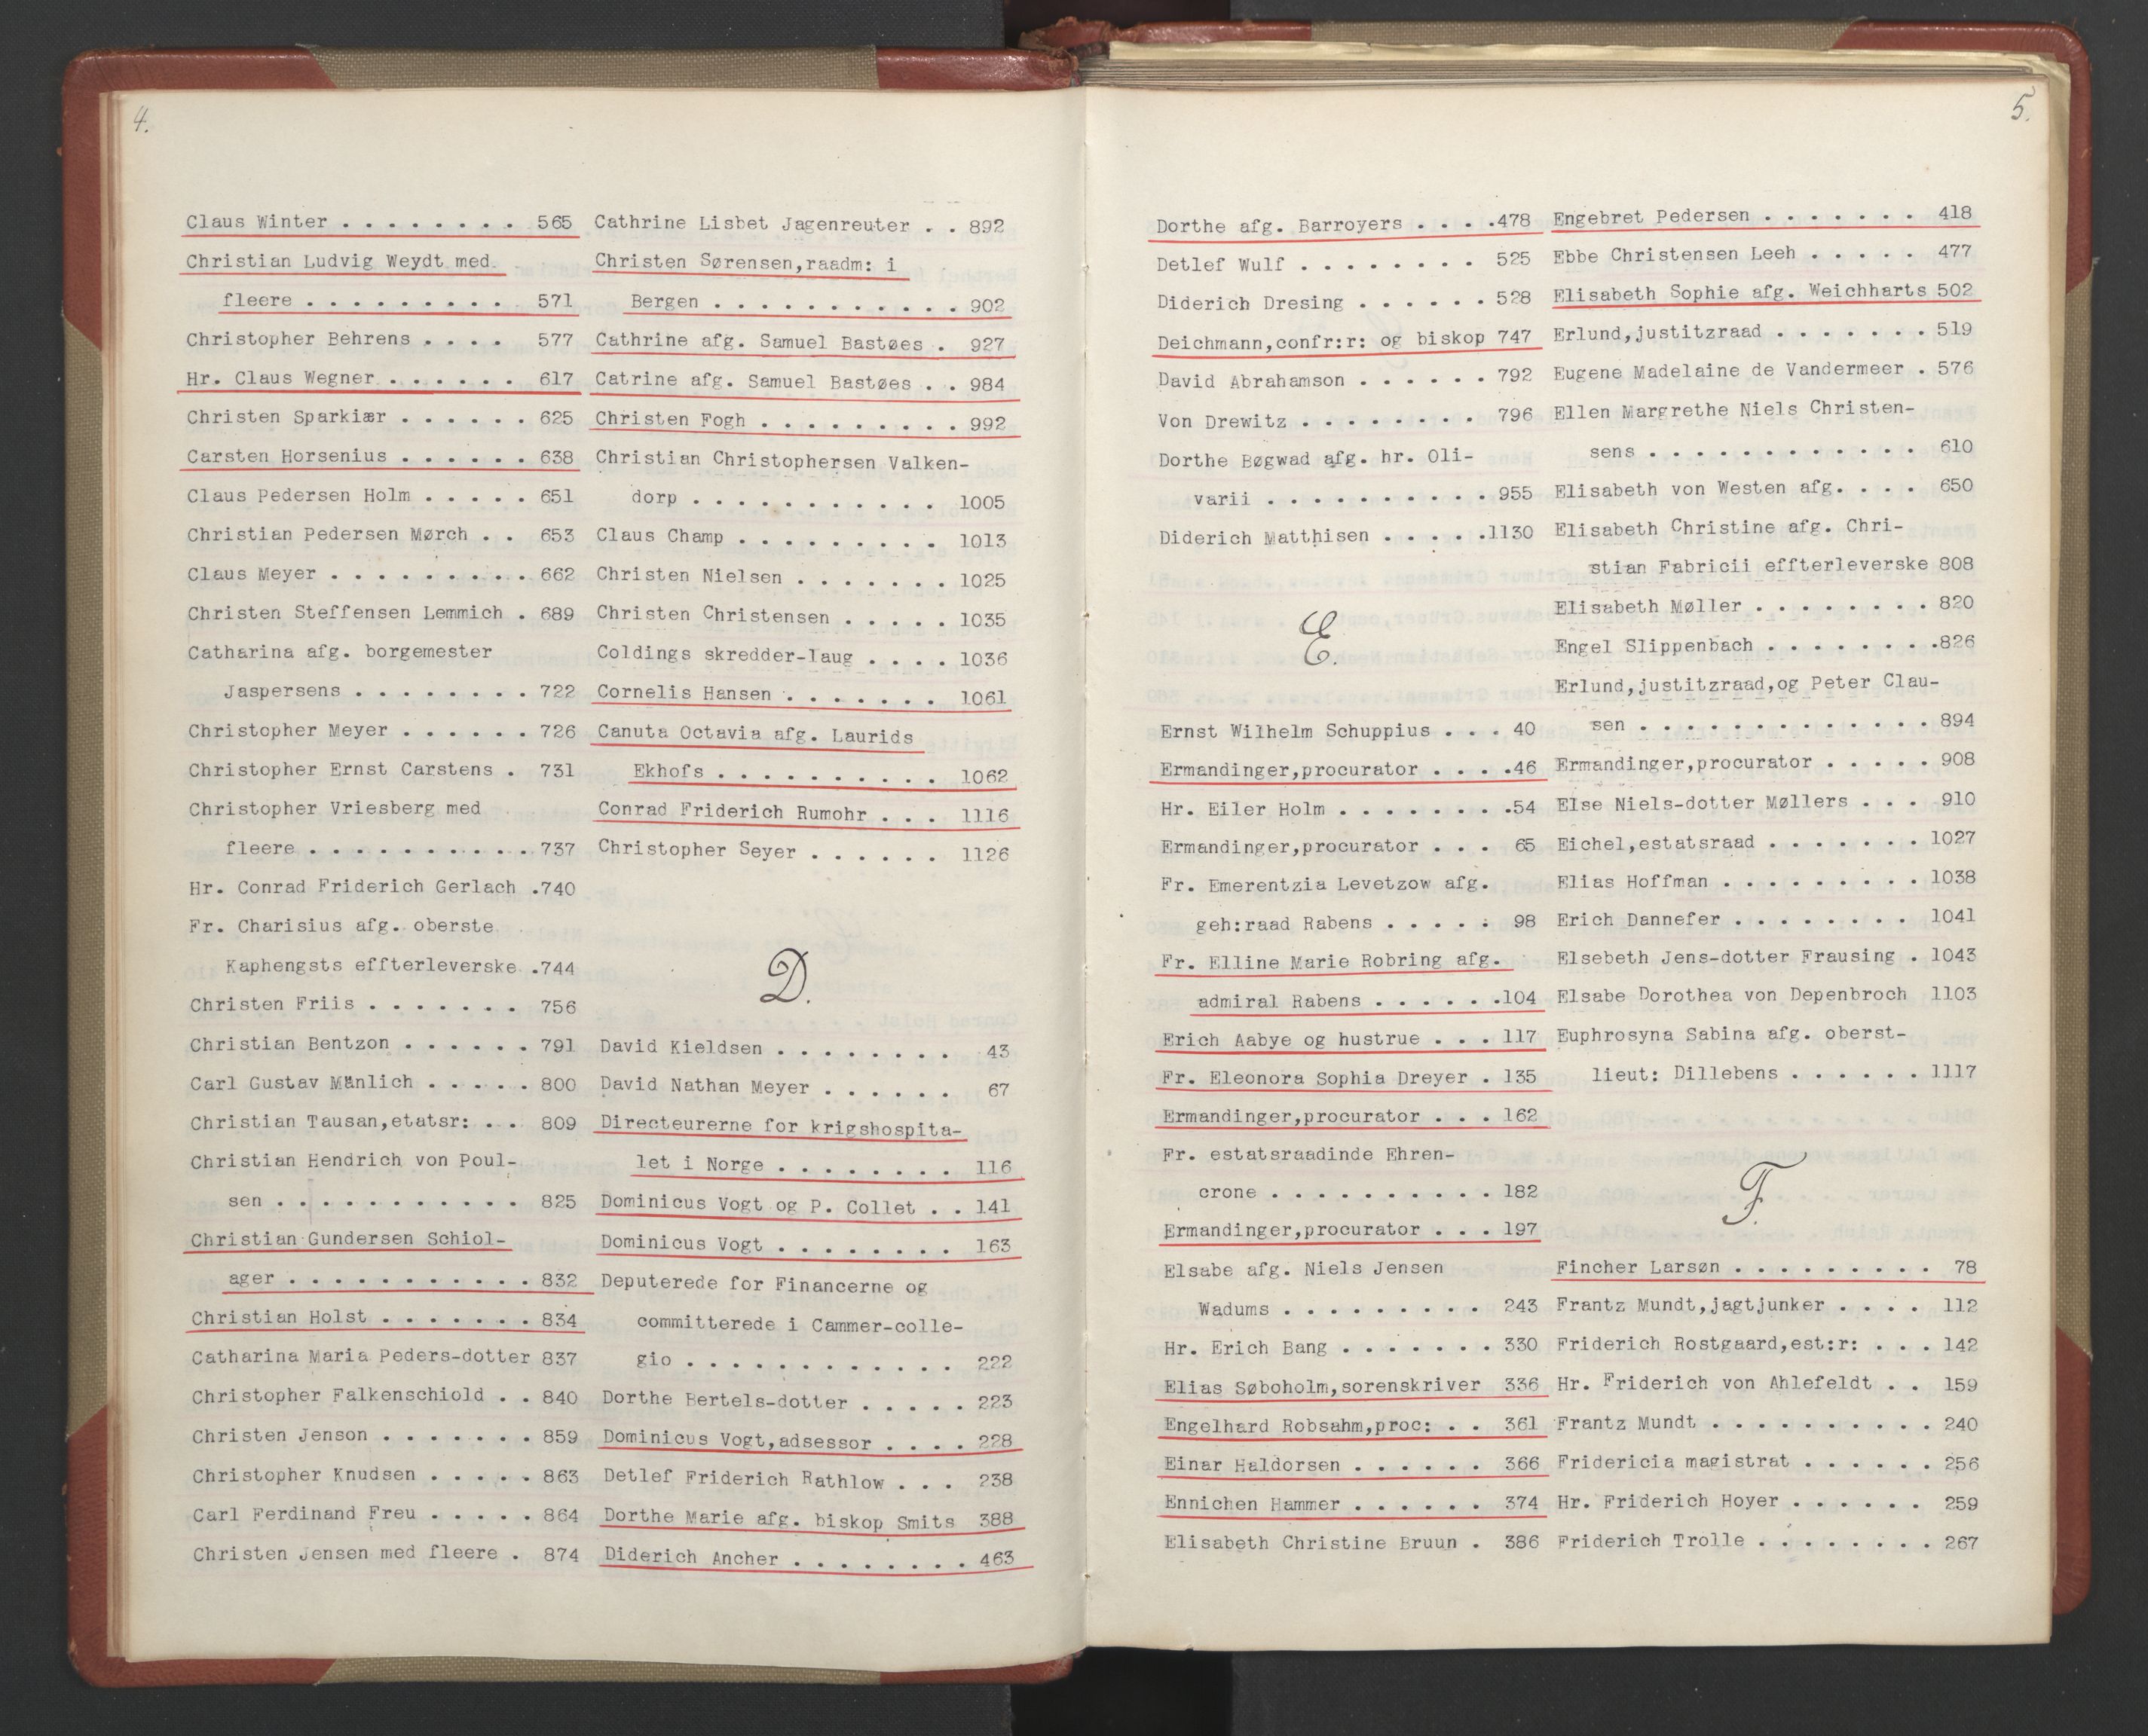 4.
Claus Winter . . . . . . . . 565
Christian Ludvig Weydt med
fleere . . . . . . . . . . 571
Christopher Behrens . . . . 577
Hr. Claus Wegner . . . . . . 617
Christen Sparkiær . . . . . . 625
Carsten Horsenius . . . . . . 638
Claus Pedersen Holm . . . . . 651
Christian Pedersen Mørch . . 653
Claus Meyer . . . . . . . . . 662
Christen Steffensen Lemmich . 689
Catharina afg. borgemester
Jaspersens . . . . . . . . 722
Christopher Meyer . . . . . . 726
Christopher Ernst Carstens . 731
Christopher Vriesberg med
fleere . . . . . . . . . . 737
Hr. Conrad Friderich Gerlach .740
Fr. Charisius afg. oberste
Kaphengsts effterleverske .744
Christen Friis . . . . . . . 756
Christian Bentzon . . . . . . 791
Carl Gustav Mänlich . . . . . 800
Christian Tausan,etatsr: . . 809
Christian Hendrich von Poul-
sen . . . . . . . . . . . 825
Christian Gundersen Schiol-
ager . . . . . . . . . . . 832
Christian Holst . . . . . . . 834
Catharina Maria Peders-dotter 837
Christopher Falkenschiold . . 840
Christen Jenson . . . . . . . 859
Christopher Knudsen . . . . . 863
Carl Ferdinand Freu . . . . . 864
Christen Jensen med fleere . 874
Cathrine Lisbet Jagenreuter . . 892
Christen Sørensen,raadm: i
Bergen . . . . . . . . . . . 902
Cathrine afg. Samuel Bastøes . 927
Catrine afg. Samuel Bastøes . . 984
Christen Fogh . . . . . . . . . 992
Christian Christophersen Valken-
dorp . . . . . . . . . . . 1005
Claus Champ . . . . . . . . . 1013
Christen Nielsen . . . . . . . 1025
Christen Christensen . . . . . 1035
Coldings skredder-laug . . . . 1036
Cornelis Hansen . . . . . . . 1061
Canuta Octavia afg. Laurids
Ekhofs . . . . . . . . . . 1062
Conrad Friderich Rumohr . . . 1116
Christopher Seyer . . . . . . 1126
D.
David Kieldsen . . . . . . . . 43
David Nathan Meyer . . . . . . 67
Directeurerne for krigshospita-
let i Norge . . . . . . . . 116
Dominicus Vogt og P. Collet . . 141
Dominicus Vogt . . . . . . . . 163
Deputerede for Financerne og
committerede i Cammer-colle-
gio . . . . . . . . . . . . 222
Dorthe Bertels-dotter . . . . . 223
Dominicus Vogt,adsessor . . . . 228
Detlef Friderich Rathlow . . . 238
Dorthe Marie afg. biskop Smits 388
Diderich Ancher . . . . . . . . 463
5.
Dorthe afg. Barroyers . . . .478
Detlef Wulf . . . . . . . . 525
Diderich Dresing . . . . . . 528
Deichmann,confr:r: og biskop 747
David Abrahamson . . . . . . 792
Von Drewitz . . . . . . . . 796
Dorthe Bøgwad afg. hr. Oli-
varii . . . . . . . . . . 955
Diderich Matthisen . . . . .1130
E.
Ernst Wilhelm Schuppius . . . 40
Ermandinger,procurator . . . .46
Hr. Eiler Holm . . . . . . . .54
Ermandinger,procurator . . . 65
Fr. Emerentzia Levetzow afg.
geh:raad Rabens . . . . . 98
Fr. Elline Marie Robring afg.
admiral Rabens . . . . . .104
Erich Aabye og hustrue . . . 117
Fr. Eleonora Sophia Dreyer . 135
Ermandinger,procurator . . . 162
Fr. estatsraadinde Ehren-
crone . . . . . . . . . . 182
Ermandinger,procurator . . . 197
Elsabe afg. Niels Jensen
Wadums . . . . . . . . . 243
Hr. Erich Bang . . . . . . . 330
Elias Søboholm,sorenskriver 336
Engelhard Robsahm,proc: . . 361
Einar Haldorsen . . . . . . 366
Ennichen Hammer . . . . . . 374
Elisabeth Christine Bruun . 386
Engebret Pedersen . . . . . . . 418
Ebbe Christensen Leeh . . . . . 477
Elisabeth Sophie afg. Weichharts 502
Erlund,justitzraad . . . . . . . 519
Eugene Madelaine de Vandermeer . 576
Ellen Margrethe Niels Christen-
sens . . . . . . . . . . . . 610
Elisabeth von Westen afg. . . . 650
Elisabeth Christine afg. Chri-
stian Fabricii effterleverske 808
Elisabeth Møller . . . . . . . . 820
Engel Slippenbach . . . . . . . .826
Erlund,justitzraad,og Peter Clau-
sen . . . . . . . . . . . . . 894
Ermandinger,procurator . . . . . 908
Else Niels-dotter Møllers . . . 910
Eichel,estatsraad . . . . . . . 1027
Elias Hoffman . . . . . . . . . 1038
Erich Dannefer . . . . . . . . 1041
Elsebeth Jens-dotter Frausing . 1043
Elsabe Dorothea von Depenbroch 1103
Euphrosyna Sabina afg. oberst-
lieut: Dillebens . . . . . . 1117
F.
Fincher Larsøn . . . . . . . . . 78
Frantz Mundt,jagtjunker . . . . 112
Friderich Rostgaard,est:r: . . . 142
Hr. Friderich von Ahlefeldt . . 159
Frantz Mundt . . . . . . . . . . 240
Fridericia magistrat . . . . . . 256
Hr. Friderich Hoyer . . . . . . 259
Friderich Trolle . . . . . . . . 267